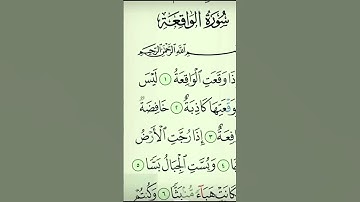 سُورَةُ الْوَاقِعَةِ
ـسْمِ اللَّهِ الرَّحْمَٰنِ الرَّحِيمِ
ذَا وَقَعَتِ الْوَاقِعَةُ ١ لَيْسَ
وَقْعَتِهَا كَاذِبَةٌ ٢ خَافِضَةٌ
فِعَةٌ ٣ إِذَا رُجَّتِ الْأَرْضُ
ا ٤ وَبُسَّتِ الْجِبَالُ بَسًّا ٥
كَانَتْ هَبَاءً مُّنۢبَثًّا ٦ وَكُنتُمْ